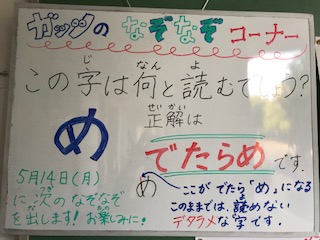 ガッツの なぞなぞ コーナー
この字は何と読むでしょう?
じ なん よ
め
せいかい
正解は
でたらめです.
5月14日(月)
に次のなぞなぞ
を出します!お楽しみに!
め
ここが でたら「め」になる
このままでは、読めない
デタラメな字です.